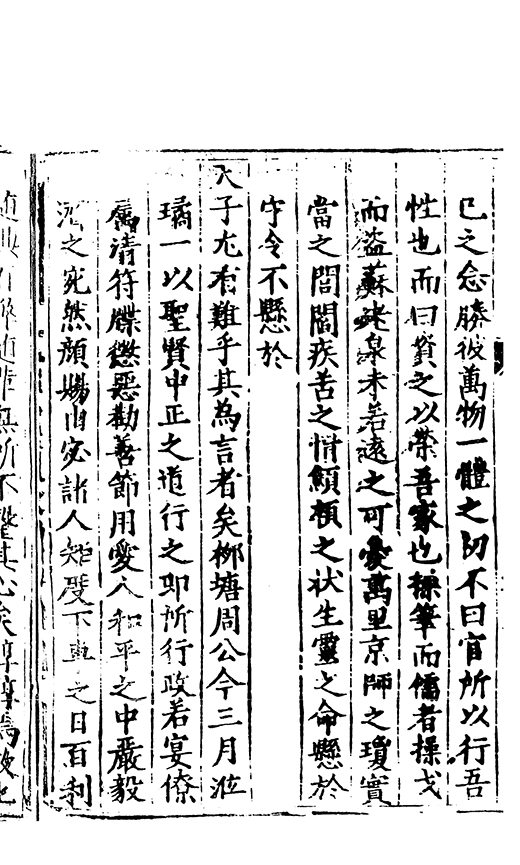 已之念勝彼萬物一體之切不曰官所以行吾
性也而曰資之以榮吾家也操筆而儒者操戈
而盜蘇老泉未若遠之可憂萬里京師之瓊實
當之閭閻疾苦之情顛頓之狀生靈之命懸於
守令不懸於
天子尤有難乎其為言者矣柳塘周公今三月涖
璚一以聖賢中正之道行之即所行政若宴僚
屬清符牒懲惡勸善節用愛人和平之中嚴毅
濟之宛然顏煬山宓諸人矩矱下車之日百利
無所不
其心矣諄諄為